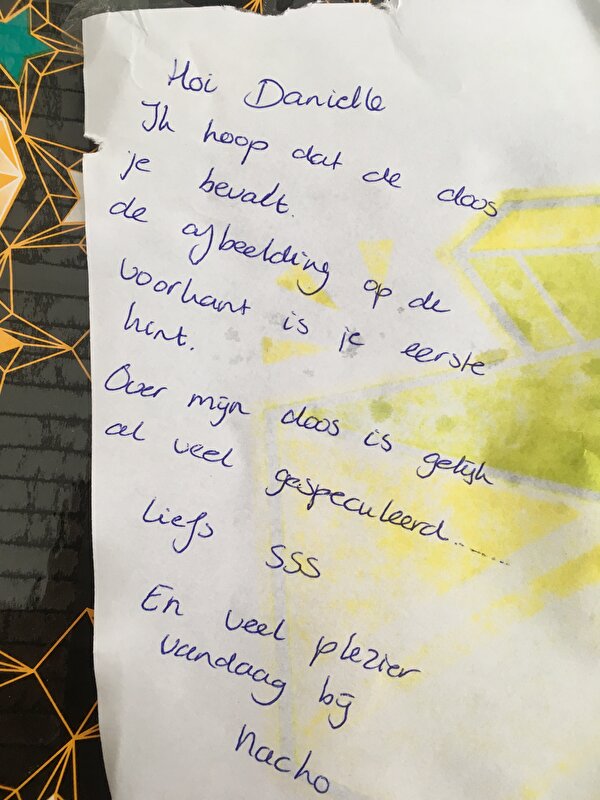 Hoi Danielle
Ik hoop dat de doos
je bevalt.
de afbeelding op de
voorkant is je eerste
hint.
Over mijn doos is gelijk
al veel gespeculeerd......
Liefs SSS
En veel plezier
vandaag bij
Nacho